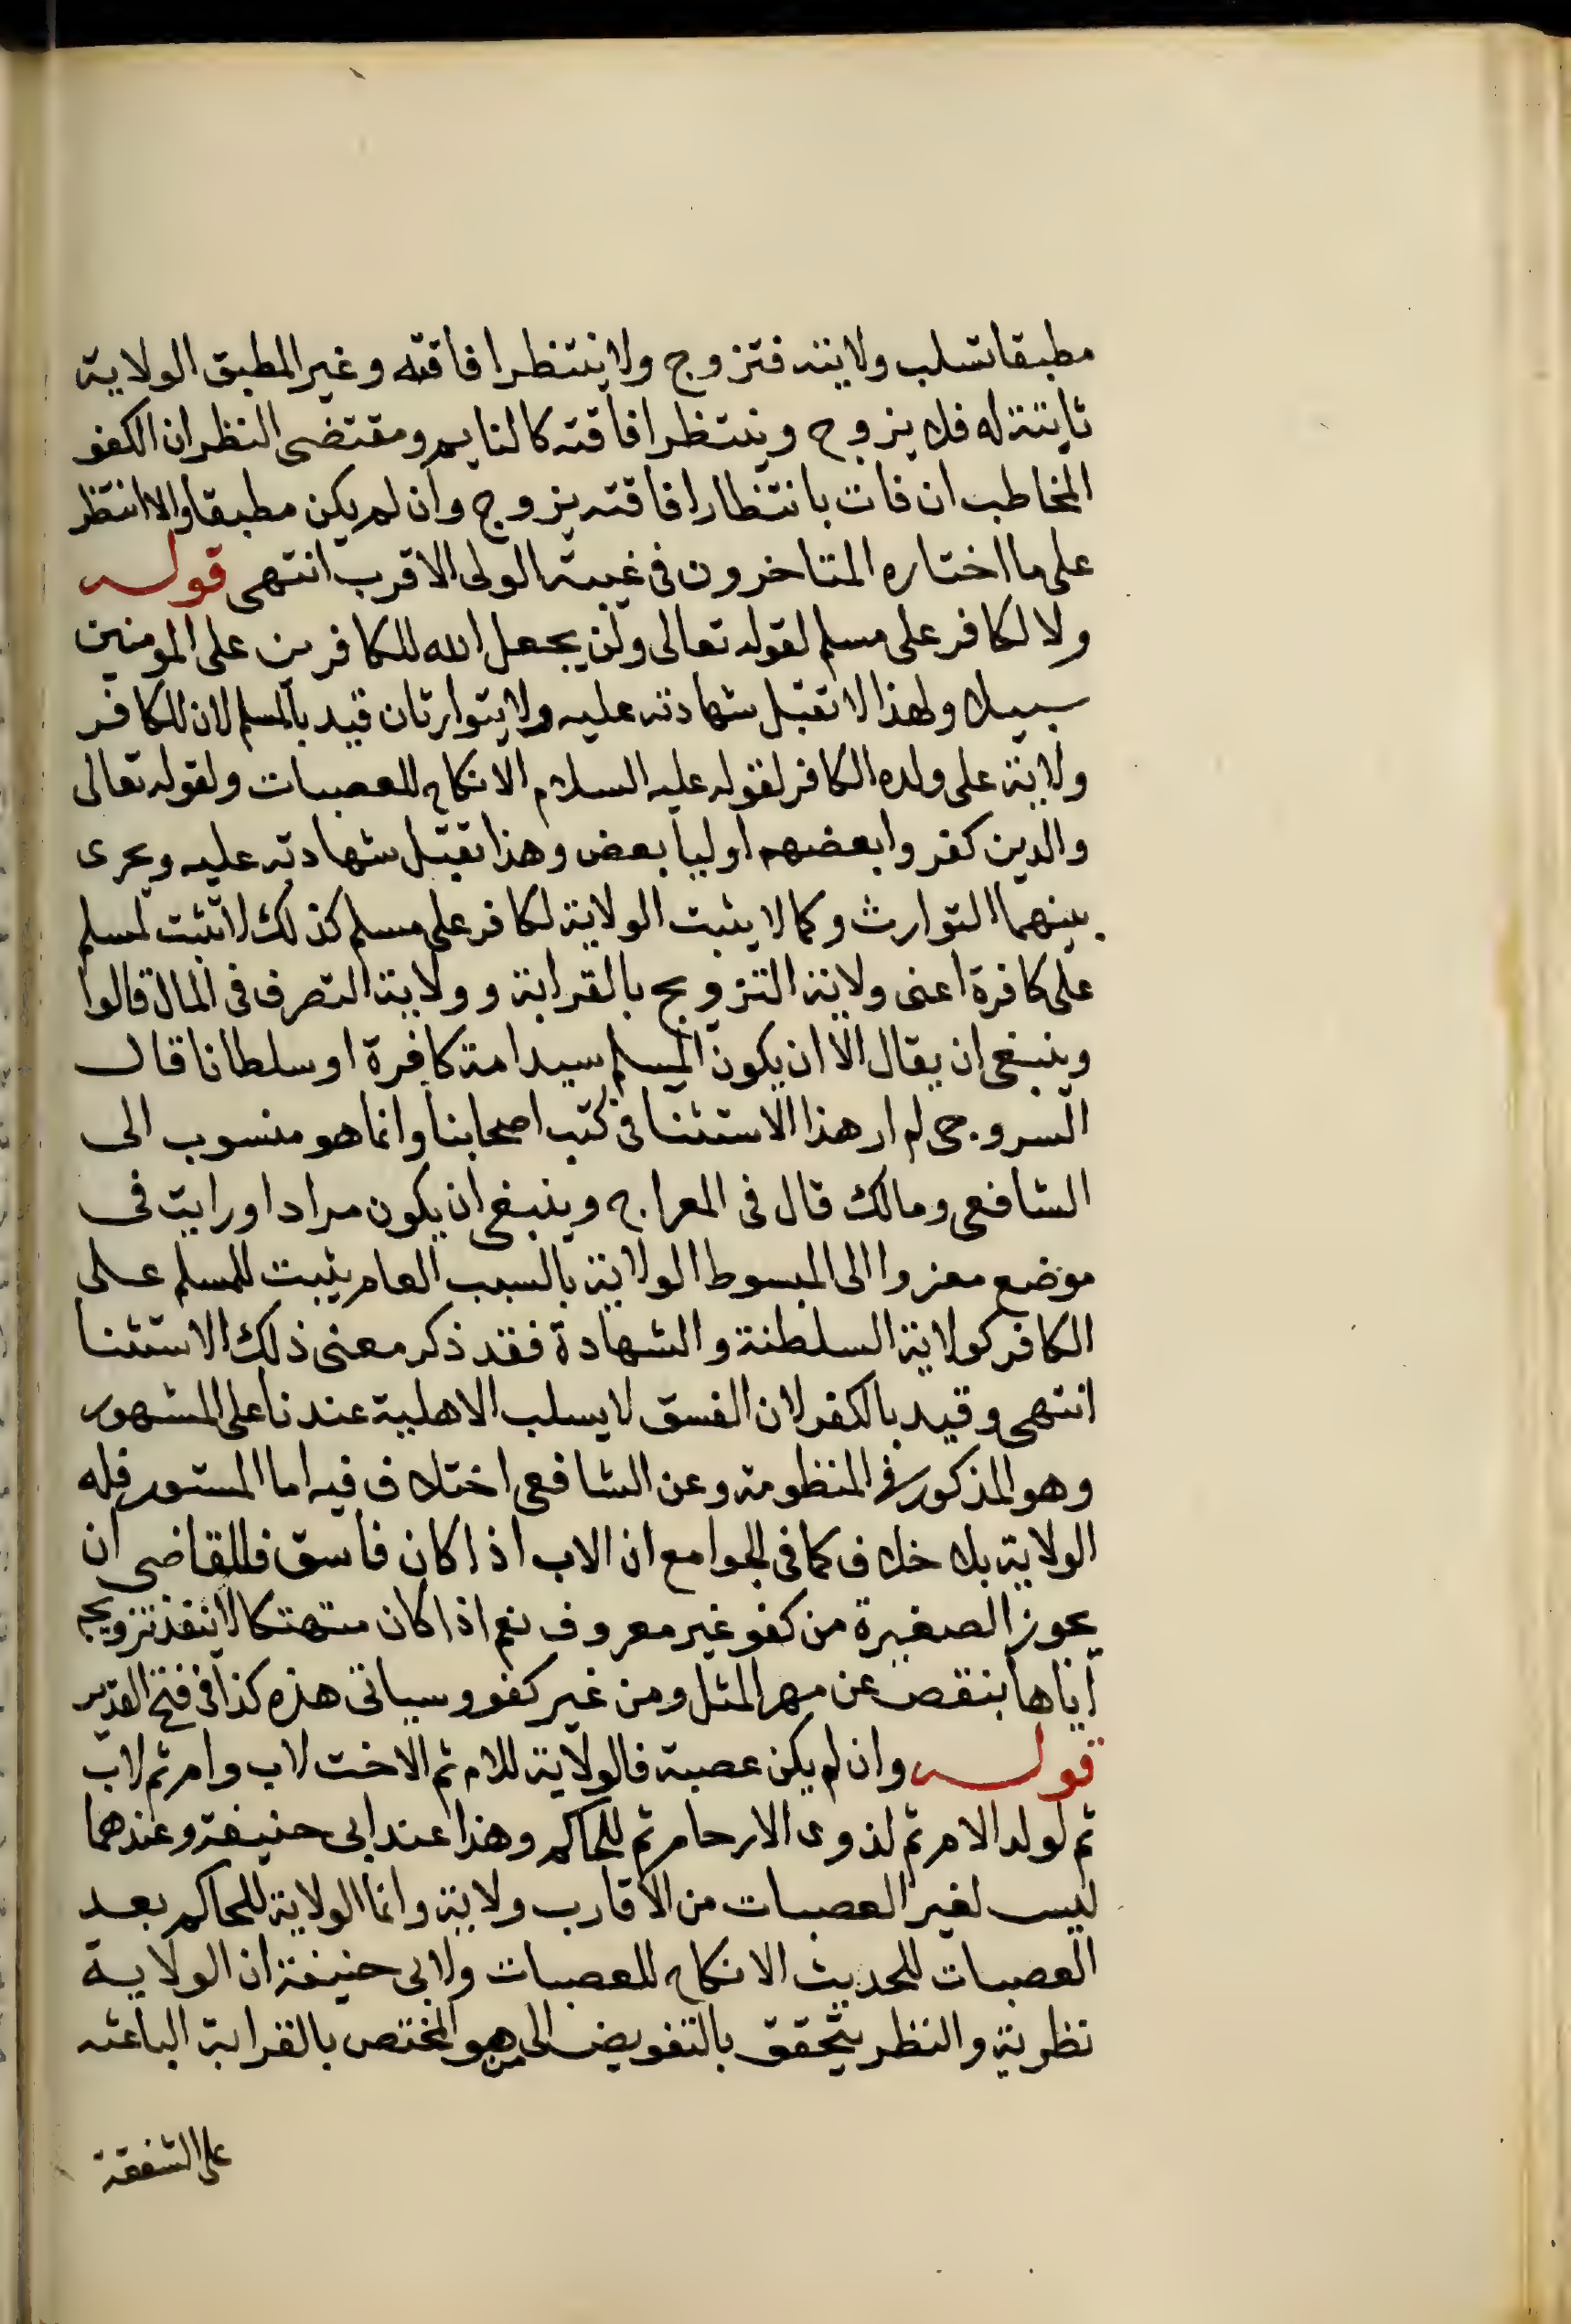 مطبقا تسلب ولايته فتزوج ولا ينتظر افاقته وغير المطبق الولاية
ثابتة له فلا يزوج وينتظر افاقته كالنايم ومقتضى النظران الكفو
المخاطب ان فات بانتظار افاقته يزوج وان لم يكن مطبقا والا انتظر
على ما اختاره المتاخرون فى غيبة الولى الاقرب انتهى قوله
ولا لكافر على مسلم لقوله تعالى ولن يجعل الله للكافرين على المومنين
سبيلا ولهذا لا تقبل شهادته عليه ولا يتوارثان قيد بالمسلم لان للكافر
ولاية على ولده الكافر لقوله عليه السلام الانكاح للعصبات ولقوله تعالى
والدين كفروا بعضهم اوليا بعض وهذا تقبل شهادته عليه ويجرى
بينهما التوارث وكما لا يثبت الولاية لكافر على مسلم كذلك لا تثبت لمسلم
على كافرة اعنى ولاية التزويج بالقرابة وولاية التصرف فى المال قالوا
وينبغى ان يقال الا ان يكون المسلم سيد امة كافرة او سلطانا قال
السروجى لم ار هذا الاستثنا فى كتب اصحابنا وانما هو منسوب الى
الشافعى ومالك قال فى المعراج وينبغى ان يكون مرادا ورايت فى
موضع معزوا الى المبسوط الولاية بالسبب العام يثبت للمسلم على
الكافر كولاية السلطنة والشهادة فقد ذكر معنى ذلك الاستثنا
انتهى وقيد بالكفر لان الفسق لا يسلب الاهلية عندنا على المشهور
وهو المذكور فى المنظومة وعن الشافعى اختلاف فيه اما المستور فله
الولاية بلا خلاف كما فى الجوامع ان الاب اذا كان فاسق فللقاضى ان
يجوز الصغيرة من كفو غير معروف نعم اذا كان متهتكا لا ينفذ تزويجه
اياها بنقص عن مهر المثل ومن غير كفو وسياتى هذه كذا فى فتح القدير
قوله وان لم يكن عصبة فالولاية للام ثم الاخت لاب وام ثم لاب
ثم لولد الام ثم لذوى الارحام ثم للحاكم وهذا عند ابى حنيفة وعندهما
ليس لغير العصبات من الاقارب ولاية وانما الولاية للحاكم بعد
العصبات للحديث الانكاح للعصبات ولابى حنيفة ان الولاية
نظرية والنظر يتحقق بالتفويض الى من هو المختص بالقرابة الباعثه
على الشفقة